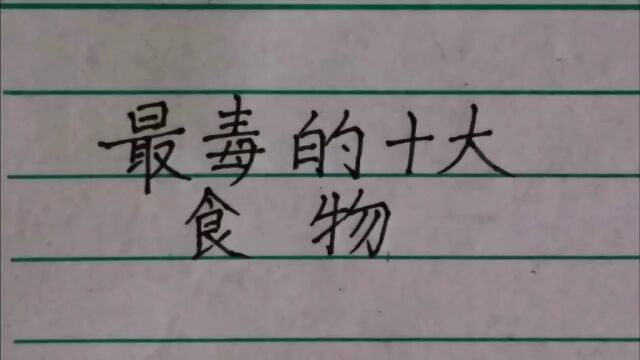 最毒的十大
食物